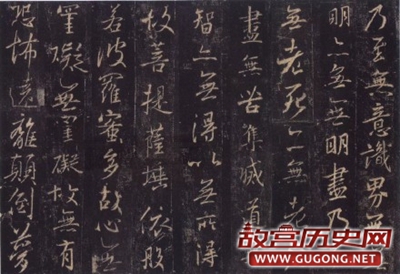 乃至無意識界無
明亦無無明盡乃
無老死亦無老
盡無苦集滅道
智亦無得以無所得
故菩提薩埵依般
若波羅蜜多故心無
罣礙無罣礙故無有
恐怖遠離顛倒夢
故宫历史网
WWW.GUGONG.NET